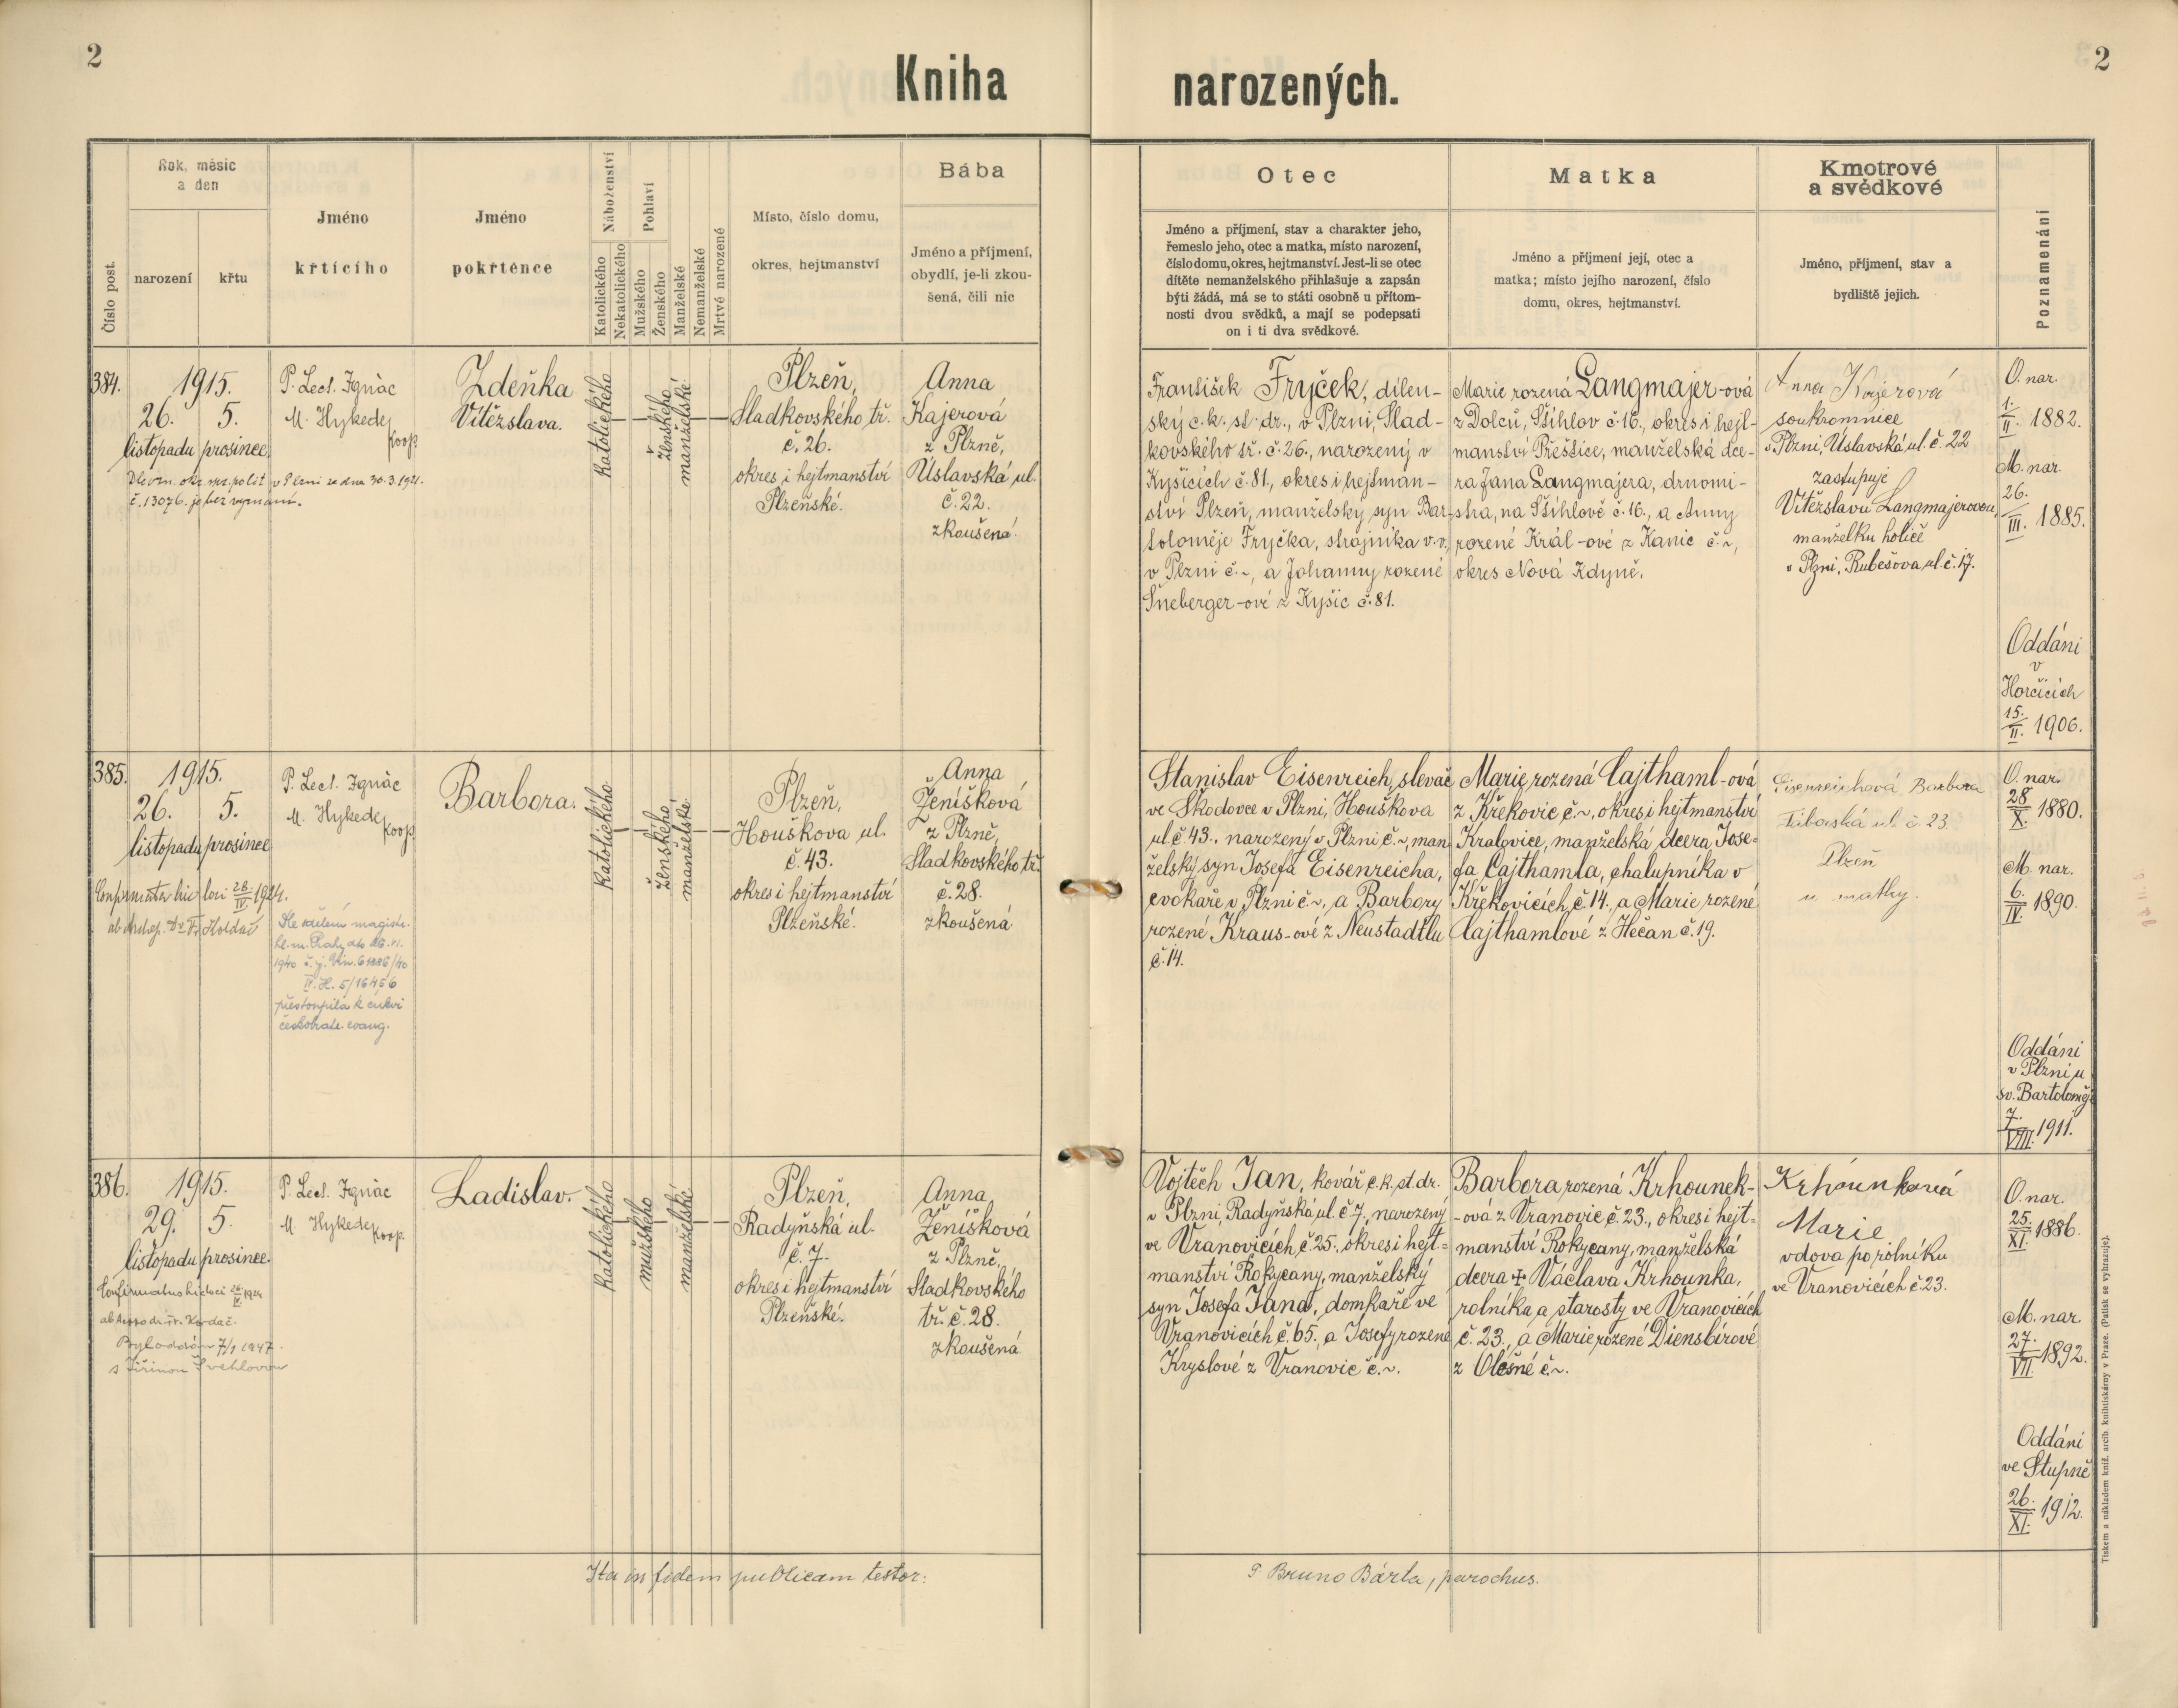 2
Kniha
narozených.
2
Číslo post.
Rok, měsíc
a den
narození
křtu
Jméno
křtícího
Jméno
pokřtěnce
Náboženství
Katolického
Nekatolického
Pohlaví
Mužského
Ženského
Manželské
Nemanželské
Mrtvě narozené
Místo, číslo domu,
okres, hejtmanství
Bába
Jméno a příjmení,
obydlí, je-li zkou-
šená, čili nic
Otec
Jméno a příjmení, stav a charakter jeho,
řemeslo jeho, otec a matka, místo narození,
číslo domu, okres, hejtmanství. Jest-li se otec
dítěte nemanželského přihlašuje a zapsán
býti žádá, má se to státi osobně u přítom-
nosti dvou svědků, a mají se podepsati
on i ti dva svědkové.
Matka
Jméno a příjmení její, otec a
matka; místo jejího narození, číslo
domu, okres, hejtmanství.
Kmotrové
a svědkové
Jméno, příjmení, stav a
bydliště jejich.
Poznamenání
384.
1915.
26. 5.
listopadu prosince
č. 13076. je bez vyznání.
P. Lect. Ignác
M. Hykede,
koop.
Zdeňka
Vítězslava.
katolického
ženského
manželské
Plzeň,
Sladkovského tř.
č. 26.
okres i hejtmanství
Plzeňské.
Anna
Kajerová
z Plzně,
Úslavská ul.
č. 22.
zkoušená.
František Fryček, dílen-
ský c. k. st. dr., v Plzni, Slad-
kovského tř. č. 26., narozený v
Kyšicích č. 81., okres i hejtman-
ství Plzeň, manželský syn Bar-
toloměje Fryčka, strojníka v. v.,
v Plzni č. ~, a Johanny rozené
Šneberger-ové z Kyšic č. 81.
Marie rozená Langmajer-ová
z Dolců, Stíhlov č. 16., okres i hejt-
manství Přeštice, manželská dce-
ra Jana Langmajera, drnomi-
stra, na Stíhlově č. 16., a Anny
rozené Král-ové z Kanic č. ~,
okres Nová Kdyně.
Anna Kajerová
soukromnice
v Plzni, Úslavská ul. č. 22
zastupuje
Vítězslavu Langmajerovou,
manželku holiče
v Plzni, Rubešova ul. č. 17.
O. nar.
1./II. 1882.
M. nar.
26./III. 1885.
Oddáni
v
Horčicích
15./II. 1906.
385.
1915.
26. 5.
listopadu prosince
P. Lect. Ignác
M. Hykede,
koop.
přestoupila k církvi
českobratr. evang.
Barbora.
katolického
ženského
manželské
Plzeň,
Houškova ul.
č. 43.
okres i hejtmanství
Plzeňské.
Anna
Ženíšková
z Plzně,
Sladkovského tř.
č. 28.
zkoušená
Stanislav Eisenreich, slevač
ve Škodovce v Plzni, Houškova
ul. č. 43., narozený v Plzni č. ~, man-
želský syn Josefa Eisenreicha,
cvokaře v Plzni č. ~, a Barbory
rozené Kraus-ové z Neustadtlu
č. 14.
Marie, rozená Cajthaml-ová
z Křekovic č. ~, okres i hejtmanství
Kralovice, manželská dcera Jose-
fa Cajthamla, chalupníka v
Křekovicích, č. 14., a Marie rozené
Cajthamlové z Hečan č. 19.
Eisenreichová Barbora
Táborská ul. č. 23
Plzeň
u matky.
O. nar.
28./X. 1880.
M. nar.
6./IV. 1890.
Oddáni
v Plzni u
sv. Bartoloměje
7./VIII. 1911.
386.
1915.
29. 5.
listopadu prosince.
Byl oddán 7/1 1947.
s Jiřinou Švehlovou
P. Lect. Ignác
M. Hykede,
koop.
Ladislav.
katolického
mužského
manželské
Plzeň,
Radyňská ul.
č. 7.
okres i hejtmanství
Plzeňské.
Anna
Ženíšková
z Plzně,
Sladkovského
tř. č. 28.
zkoušená
Vojtěch Jan, kovář c. k. st. dr.
v Plzni, Radyňská ul. č. 7., narozený
ve Vranovicích, č. 25., okres i hejt-
manství Rokycany, manželský
syn Josefa Jana, domkaře ve
Vranovicích č. 65., a Josefy rozené
Kryslové z Vranovic č. ~.
Barbora, rozená Krhounek-
-ová z Vranovic č. 23., okres i hejt-
manství Rokycany, manželská
dcera + Václava Krhounka,
rolníka a starosty ve Vranovicích
č. 23., a Marie rozené Diensbírové
z Olešné č. ~.
Krhounková
Marie
vdova po rolníku
ve Vranovicích č. 23.
O. nar.
25./XI. 1886.
M. nar.
27./VII. 1892.
Oddáni
ve Stupně
26./XI. 1912.
Ita in fidem publicam testor:
P. Bruno Bárta, parochus.
Tiskem a nákladem kníž. arcib. knihtiskárny v Praze. (Patisk se vyhrazuje).